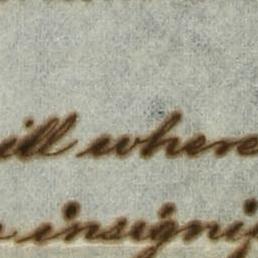 ill where
insigni